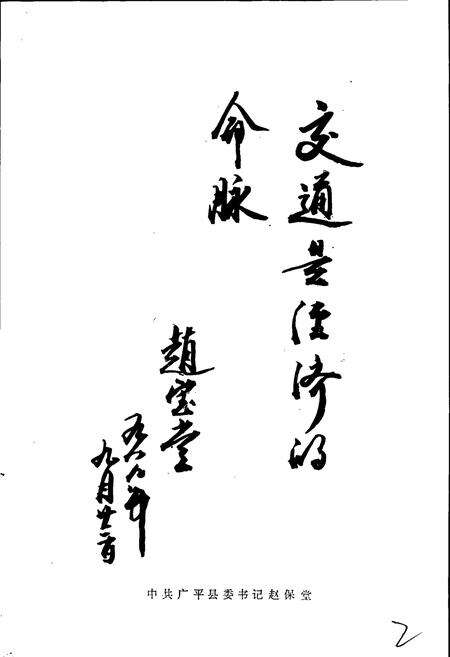 交通是经济的
命脉
赵宝堂
九月廿一日
中共广平县委书记赵保堂
2